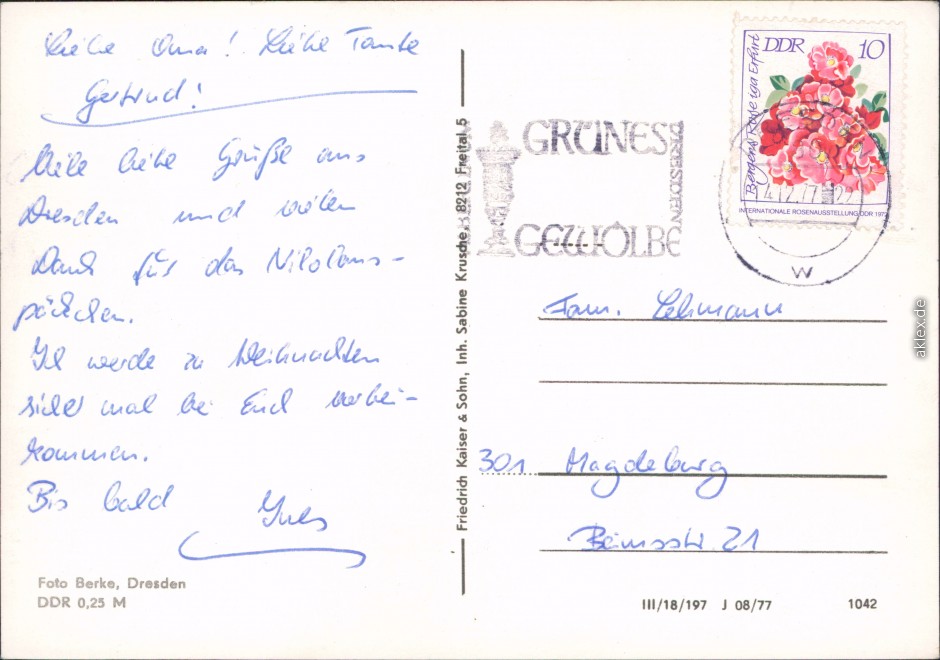 Liebe Oma! Liebe Tante
Gertrud!
Viele liebe Grüße aus
Dresden und vielen
Dank für das Nikolaus-
päckchen.
Ich werde zu Weihnachten
sicher mal bei Euch vorbei-
kommen.
Bis bald
Foto Berke, Dresden
DDR 0,25 M
Friedrich Kaiser & Sohn, Inh. Sabine Krusche, 8212 Freital 5
GRÜNES
GEWÖLBE
DRESDEN
DDR 10
Bergers Rose iga Erfurt
INTERNATIONALE ROSENAUSSTELLUNG DDR 197
W
Fam. Lehmann
301 Magdeburg
Beimsstr. 21
III/18/197 J 08/77 1042
aklex.de